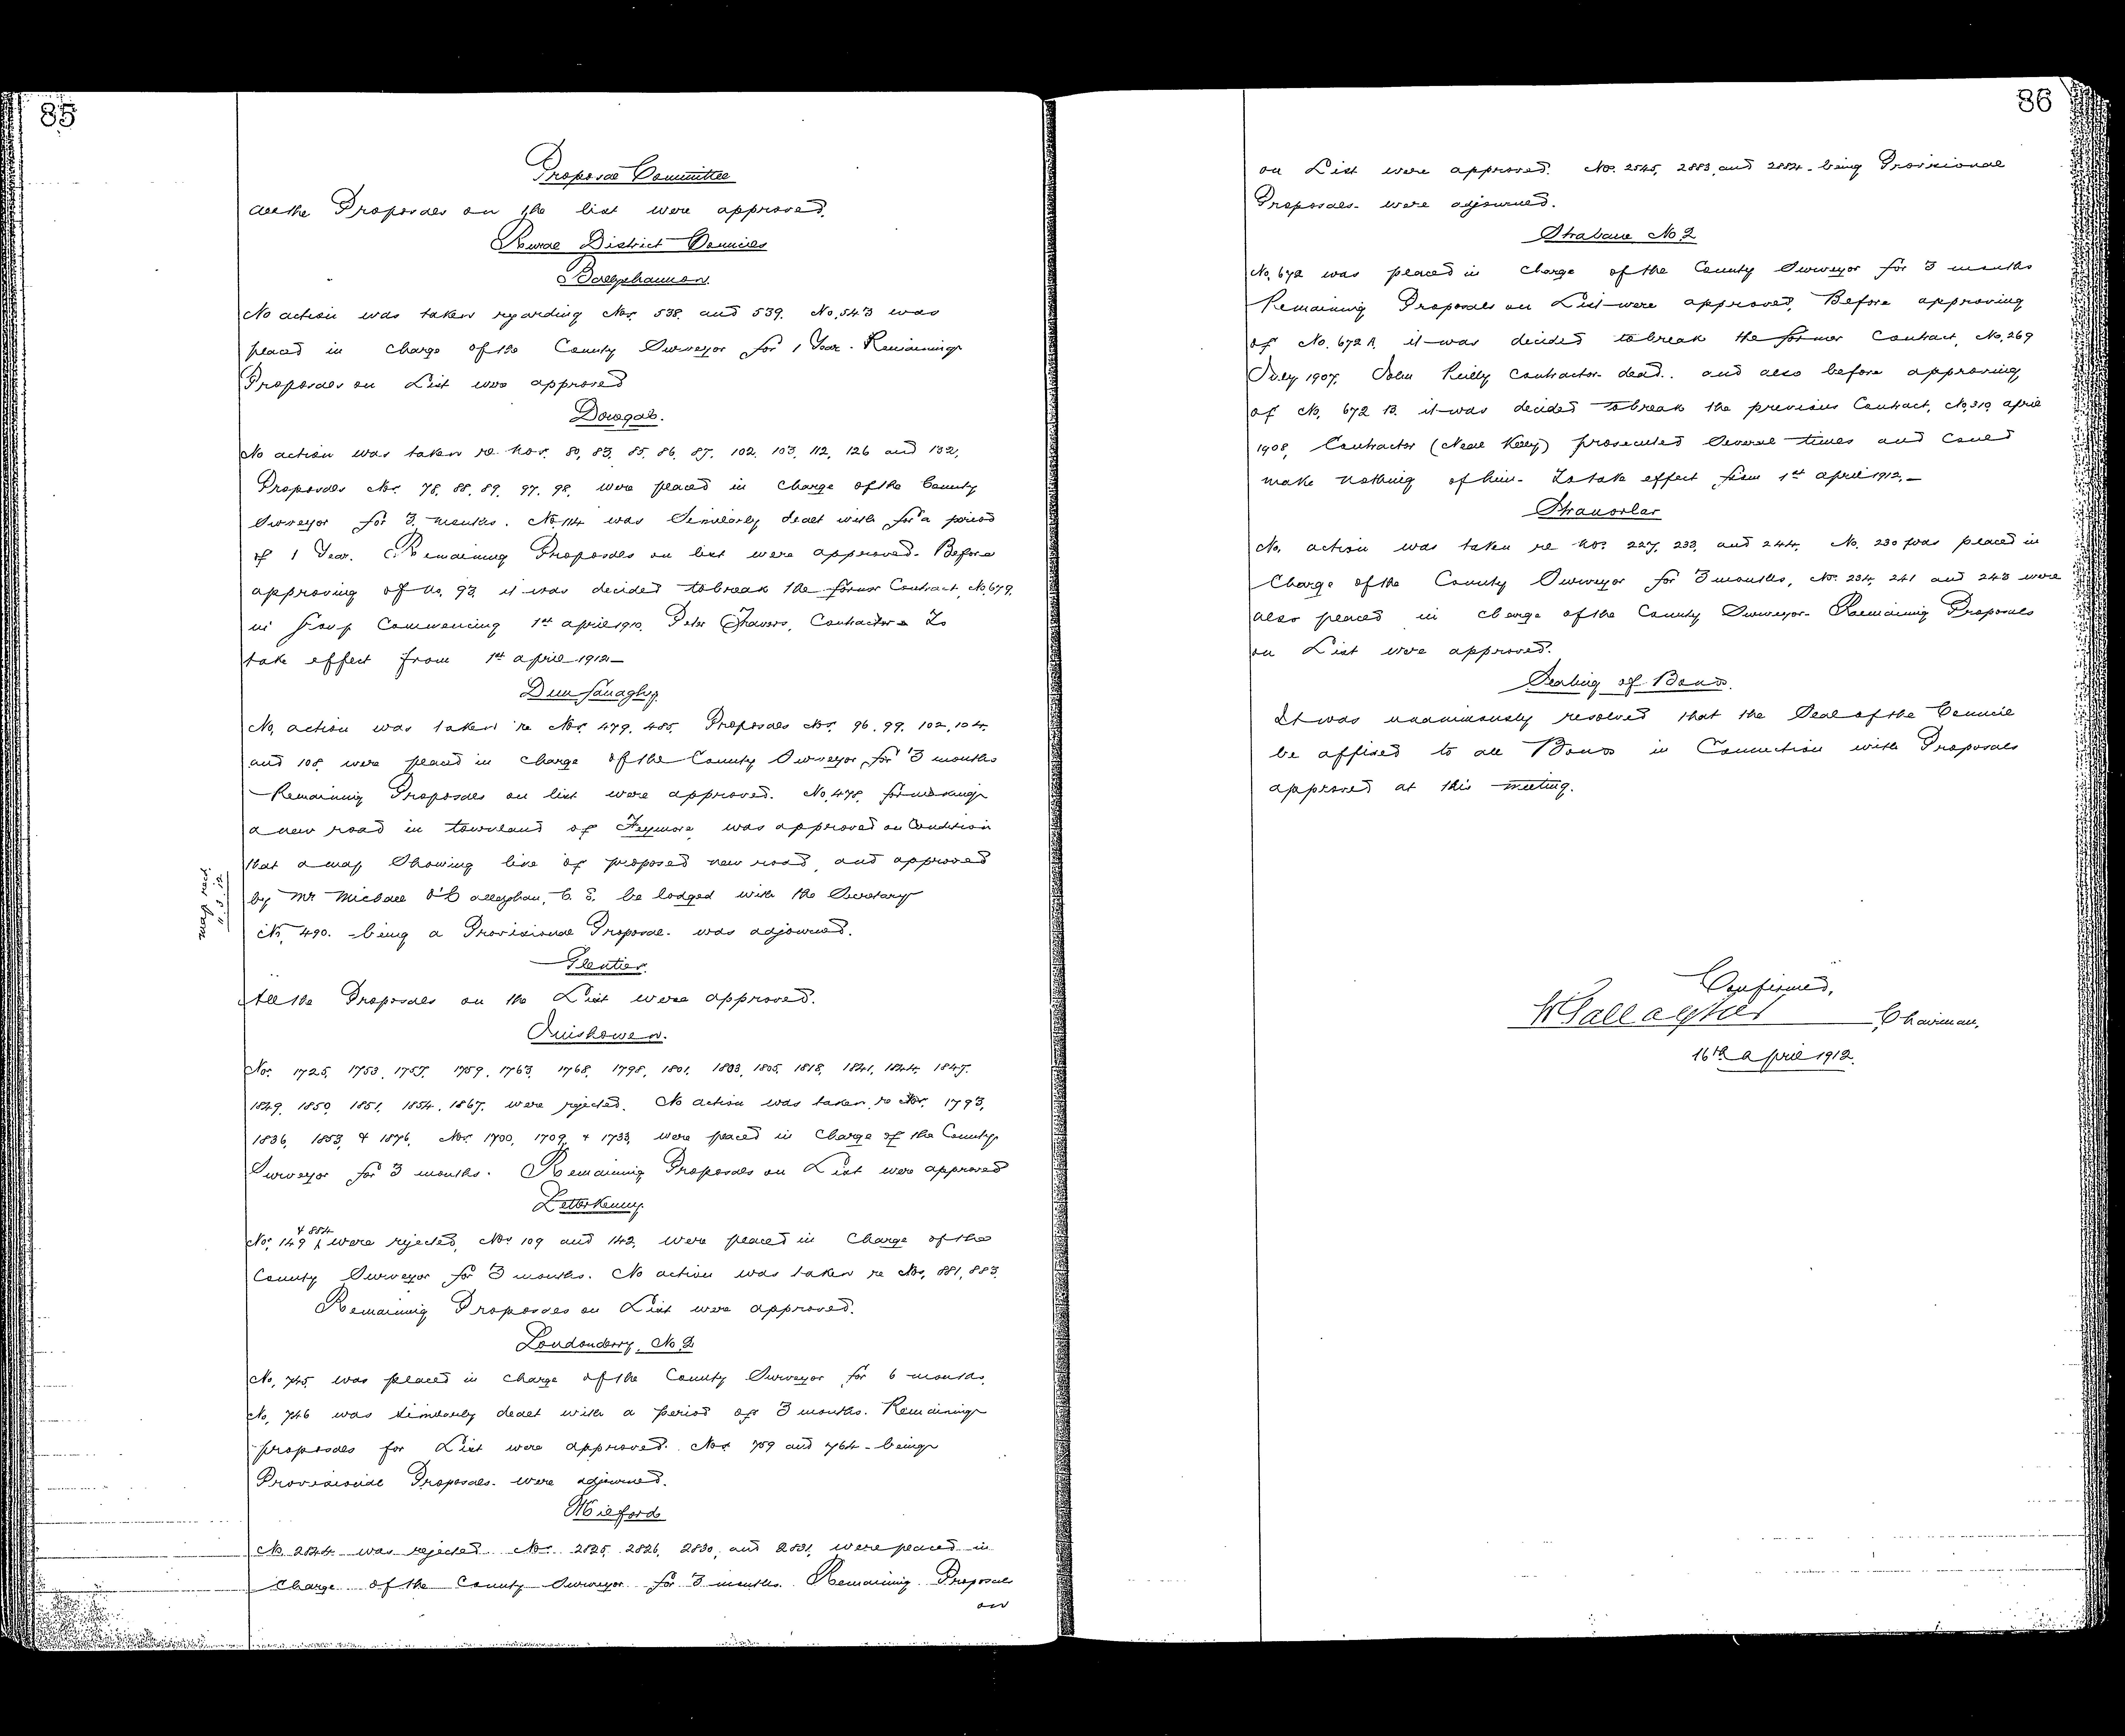 85
Proposal Committee
All the Proposals on the list were approved.
Rural District Councils
Ballyshannon.
No action was taken regarding Nos. 538 and 539. No. 543 was
placed in charge of the County Surveyor for 1 Year. Remaining
Proposals on List were approved
Donegal.
No action was taken re Nos. 80, 83, 85, 86, 87, 102, 103, 112, 126 and 132.
Proposals Nos. 78, 88, 89, 97, 98, were placed in charge of the County
Surveyor for 3 months. No. 114 was similarly dealt with for a period
of 1 Year. Remaining Proposals on list were approved. Before
approving of No. 93 it was decided to break the former Contract, No. 679
in commencing 1st April 1910. Peter Travers, Contractor. To
take effect from 1st April 1912.
Dunfanaghy.
No action was taken re Nos. 479, 485. Proposals Nos. 96, 99, 102, 104,
and 108 were placed in charge of the County Surveyor for 3 months
Remaining Proposals on list were approved. No. 478, for making
a new road in townland of was approved on condition
that a map showing line of proposed new road, and approved
by Mr Michael O'Callaghan, C. E. be lodged with the Secretary
map recd.
11. 3. 12.
No. 490. being a Provisional Proposal. was adjourned.
Glenties.
All the Proposals on the List were approved.
Inishowen.
Nos. 1725, 1753, 1757, 1759, 1763, 1768, 1798, 1801, 1803, 1805, 1818, 1841, 1844, 1847.
1849, 1850, 1851, 1854, 1867, were rejected. No action was taken re Nos. 1793,
1836, 1853, & 1876. Nos. 1700, 1709, & 1733, were placed in charge of the County
Surveyor for 3 months. Remaining Proposals on List were approved
Letterkenny.
& 884
Nos. 149 ^ were rejected, Nos 109 and 142, were placed in charge of the
County Surveyor for 3 months. No action was taken re Nos. 881, 883.
Remaining Proposals on List were approved.
Londonderry, No. 2
No. 745 was placed in charge of the County Surveyor for 6 months.
No. 746 was similarly dealt with a period of 3 months. Remaining
proposals for List were approved. Nos 759 and 764 - being
Provisional Proposals. were adjourned.
Milford
No 2844 was rejected Nos. 2825, 2826, 2830, and 2831, were placed in
charge of the County Surveyor for 3 months. Remaining Proposals
on
86
on List were approved. Nos. 2545, 2883, and 2884 - being Provisional
Proposals - were adjourned.
Strabane No. 2
No. 672 was placed in charge of the County Surveyor for 3 months
Remaining Proposals on List were approved. Before approving
of No. 672 A. it was decided to break the former contract, No. 269
July 1907, John Reilly Contractor - dead. and also before approving
of No. 672 B. it was decided to break the previous Contract, No. 310 April
1908, Contractor (Neal Kelly) prosecuted several times and could
make nothing of him. To take effect from 1st April 1912.
Stranorlar
No. action was taken re Nos. 227, 233, and 244. No. 230 was placed in
charge of the County Surveyor for 3 months, Nos. 234, 241 and 243 were
also placed in charge of the County Surveyor - Remaining Proposals
on List were approved.
Sealing of Bonds.
It was unanimously resolved that the Seal of the Council
be affixed to all Bonds in Connection with Proposals
approved at this meeting.
Confirmed,
W Gallagher Chairman.
16th April 1912.